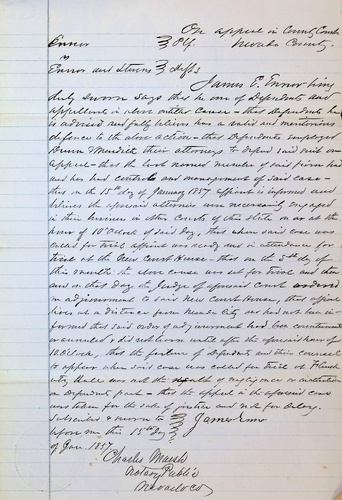 On appeal in County Court
Nevada County.
Ennor } Plf.
vs
Ennor and Stevens } Defts
James E. Ennor being
duly sworn says that he is one of Defendents and
appellants in above entitled cause – that Defendents he
is advised and fully believes has a valid and meritorious
defence to the above action – that Defendents employed
& Meredith their attorneys to defend said suit on
appeal – that the last named member of said firm had
and has had controle and management of said case –
that on the 15th day of January 1857 affiant is informed and
believes the aforesaid attornies were necessarily engaged
in their business in other Courts of this State on or at the
hour of 10 O'clock of said Day, that when said case was
called for trial affiant was ready and in attendance for
trial at the New Court House – that on the 5th day of
this month the above cause was set for trial and then
and on that day the Judge of aforesaid court ordered
an adjournment to said New Court House, that affiant
lives at a distance from Nevada City and had not been in-
formed that said order of adjournment had been countermanded
or annulled & did not learn until after the aforesaid hour of
10 O'clock, that the failure of Defendents and their counsel
to appear when said case was called for trial at
Halls was not the result of negligence or inattention
on Defendents part – that the appeal in the aforesaid case
was taken for the sake of justice and not for delay.
Subscribed & sworn to } James Ennor
before me this 15th Day }
of Jan. 1857
Charles Marsh
Notary Public
Nevada Co